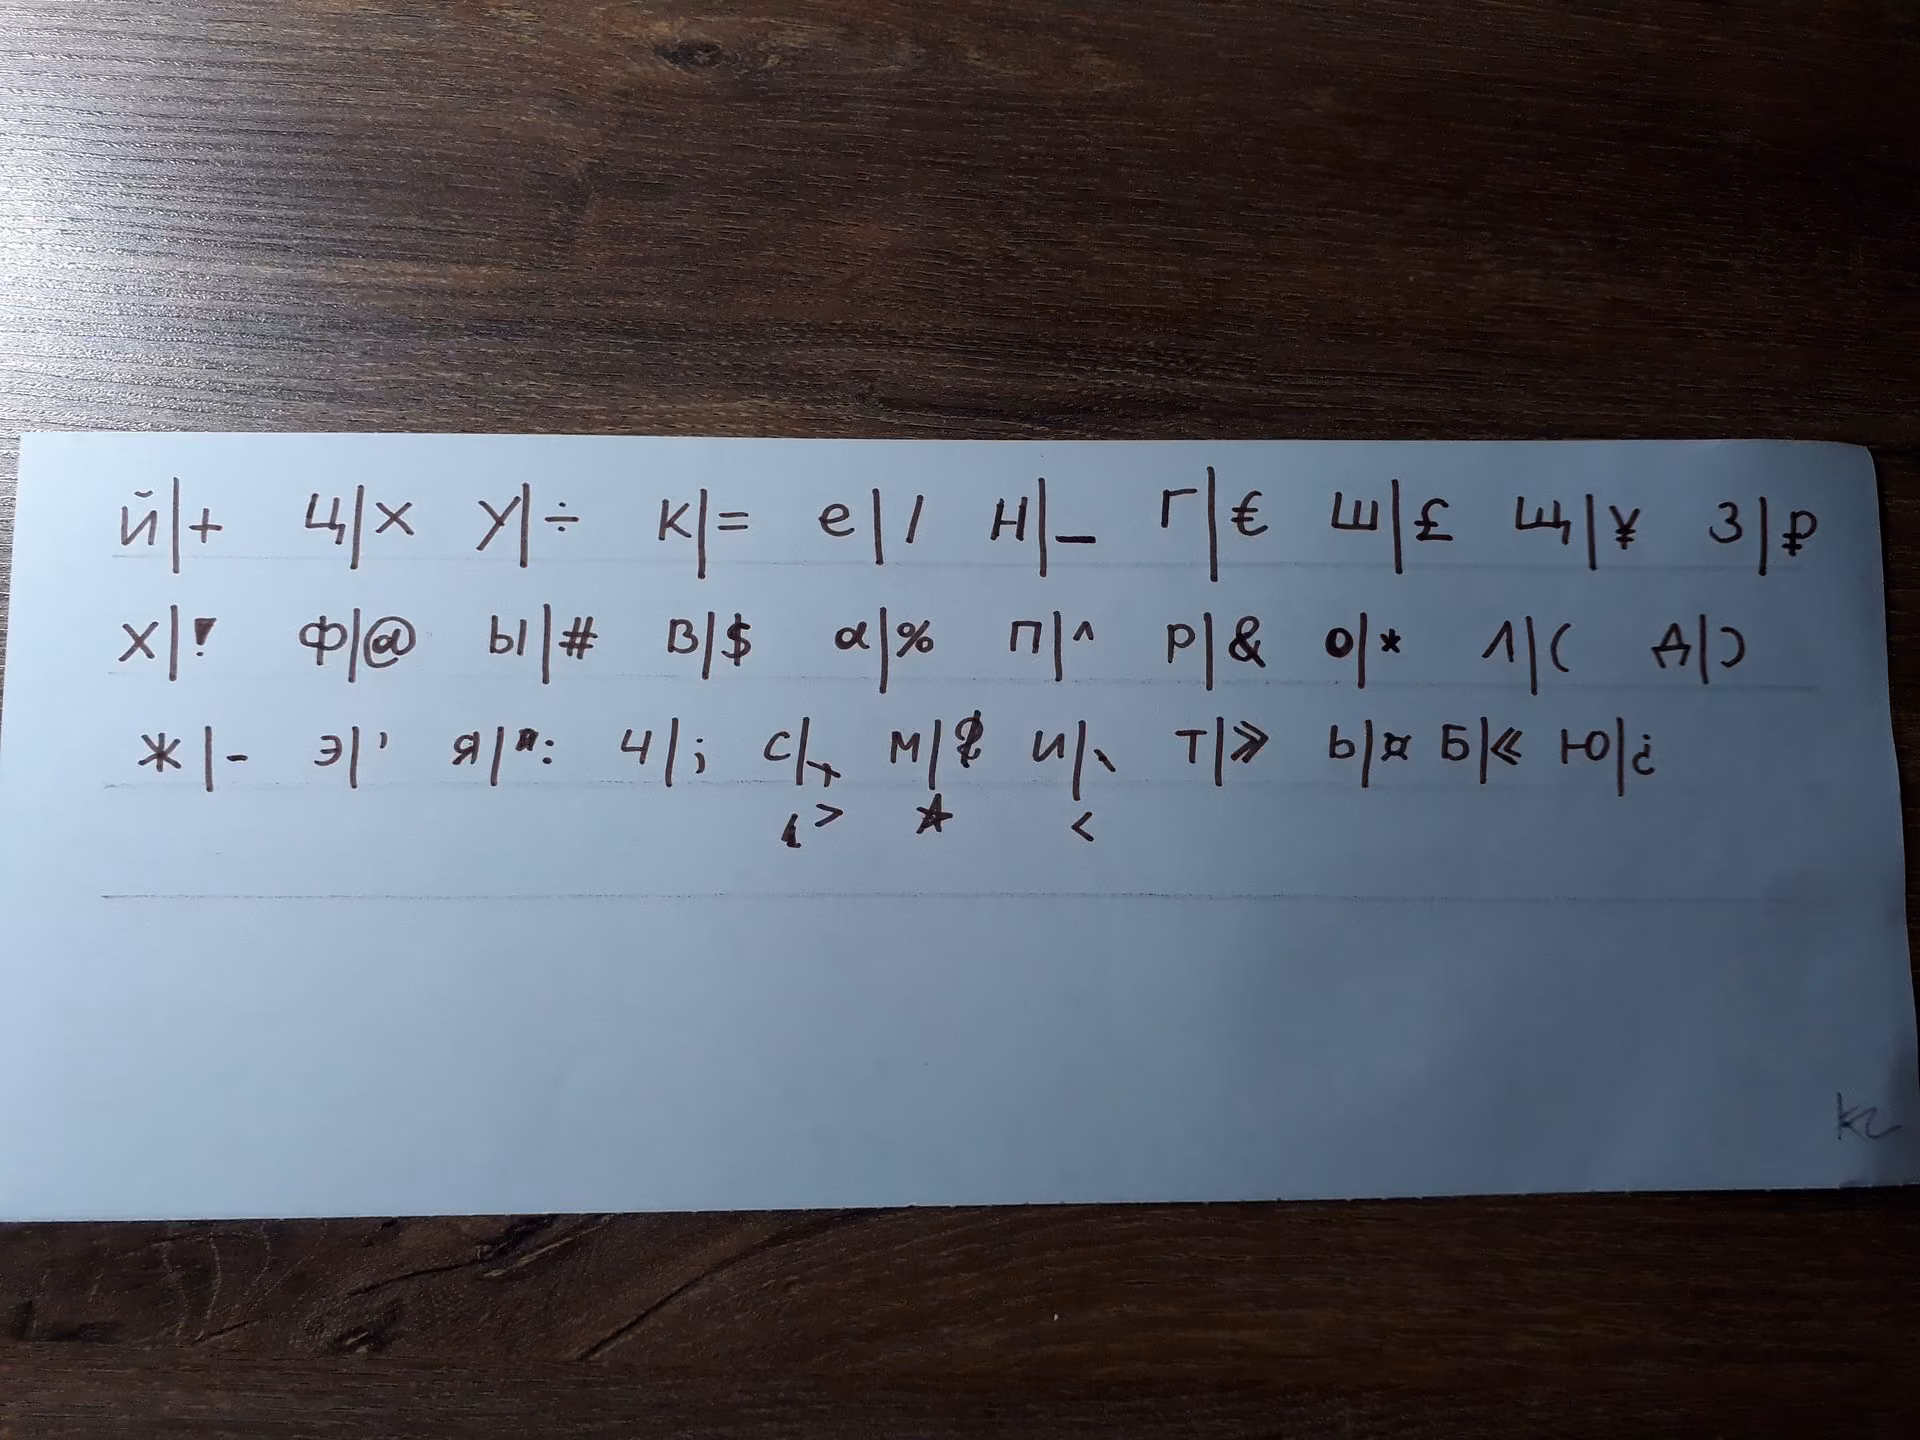 й|+ ц|× у|÷ к|= е|/ н|_ г|€ ш|£ щ|¥ з|₽
х|! ф|@ ы|# в|$ а|% п|^ р|& о|* л|( д|)
ж|- э|' я|": ч|; с|, м| и|、 т|» ь|¤ б|« ю|¿
> ☆ <